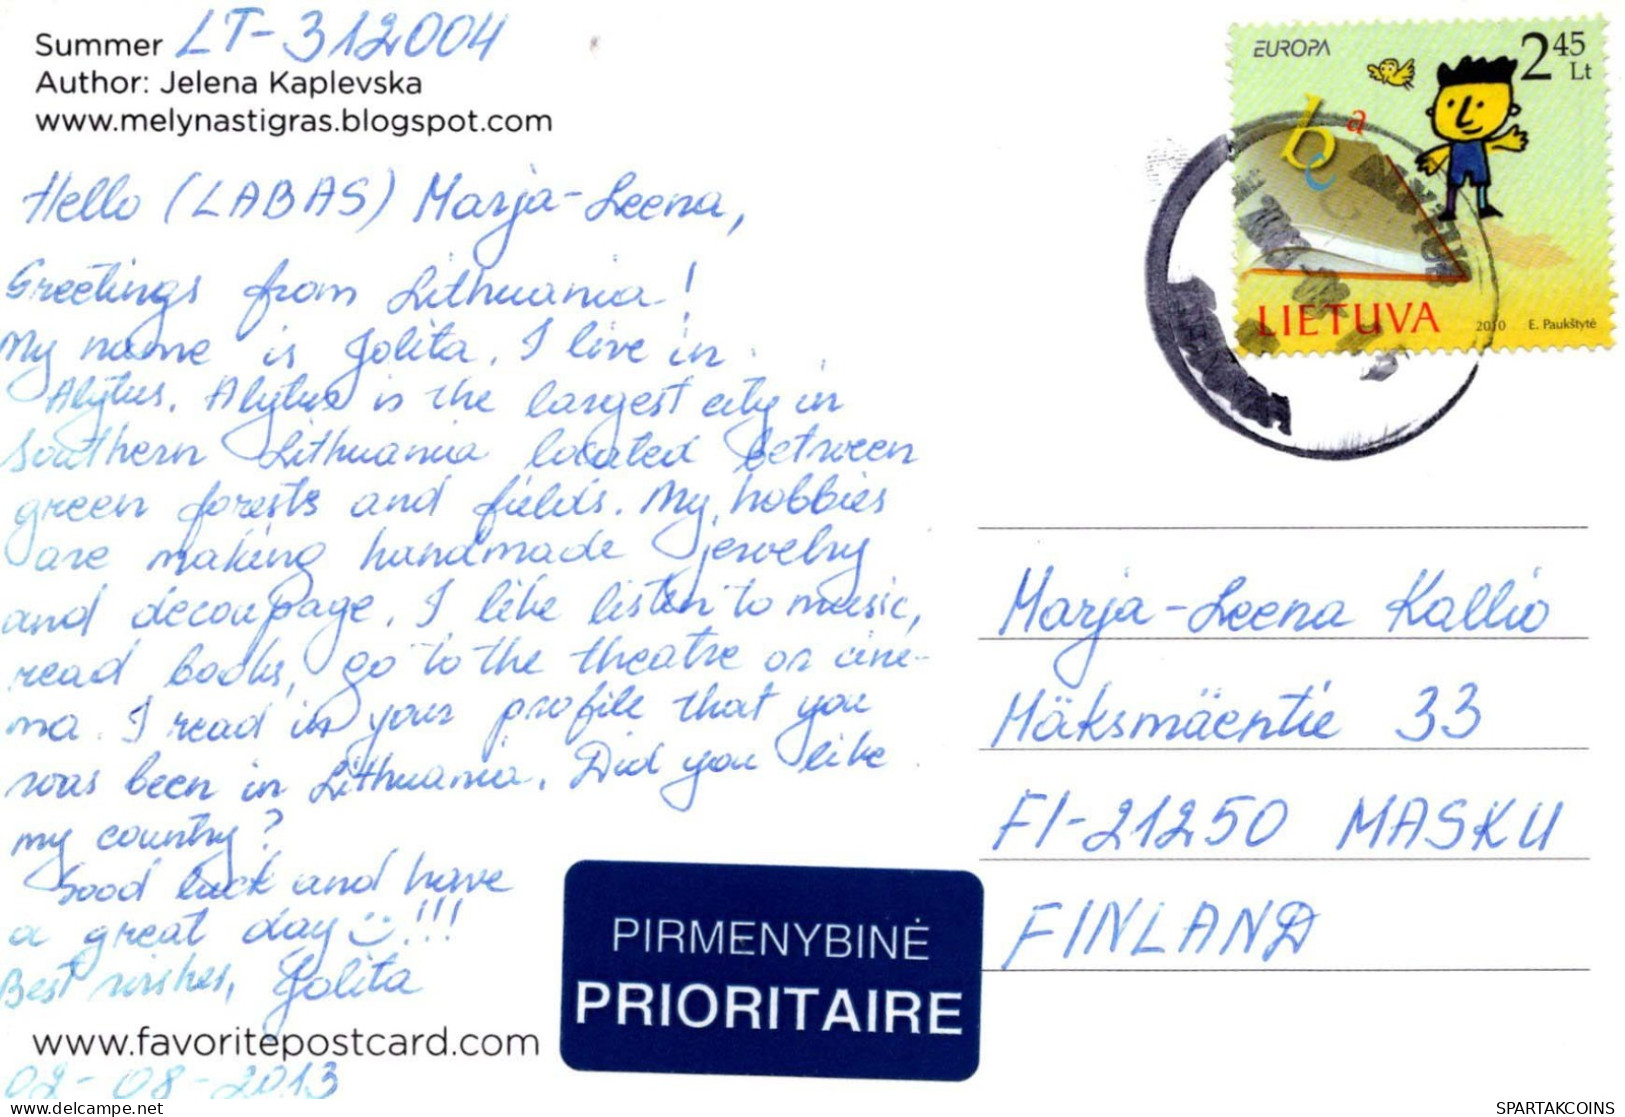 Summer LT-312004
Author: Jelena Kaplevska
www.melynastigras.blogspot.com
Hello (LABAS) Marja-Leena,
Greetings from Lithuania!
My name is Jolita. I live in
Alytus. Alytus is the largest city in
Southern Lithuania located between
green forests and fields. My hobbies
are making handmade jewelry
and decoupage. I like listen to music,
read books, go to the theatre or cine-
ma. I read in your profile that you
was been in Lithuania. Did you like
my country?
Good luck and have
a great day!!!
Best wishes, Jolita
www.favoritepostcard.com
02-08-2013
EUROPA
2 45
Lt
b a c
LIETUVA
2010 E. Paukštytė
Marja-Leena Kallio
Mäksmäentie 33
FI-21250 MASKU
FINLAND
PIRMENYBINĖ
PRIORITAIRE
SPARTAKCOINS